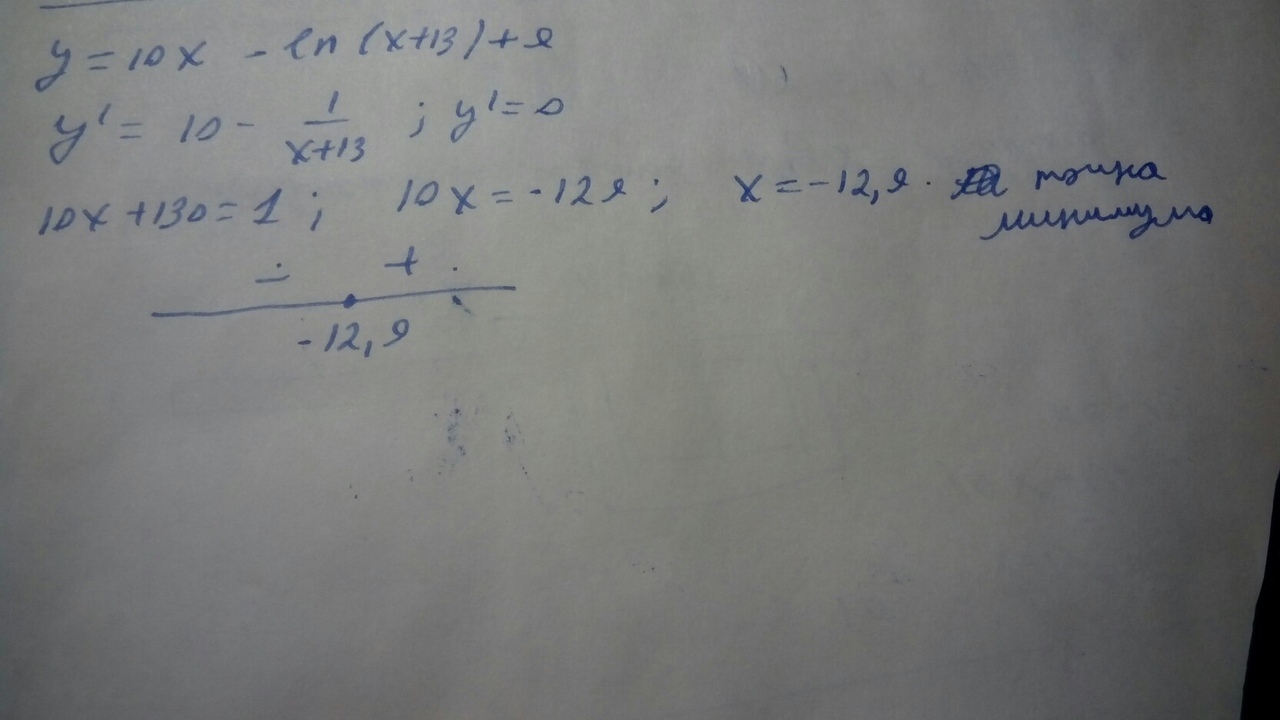 y = 10x - ln (x+13) + 9
y' = 10 - 1/(x+13) ; y' = 0
10x + 130 = 1 ; 10x = -129 ; x = -12,9. точка
минимума
- + .
-12,9